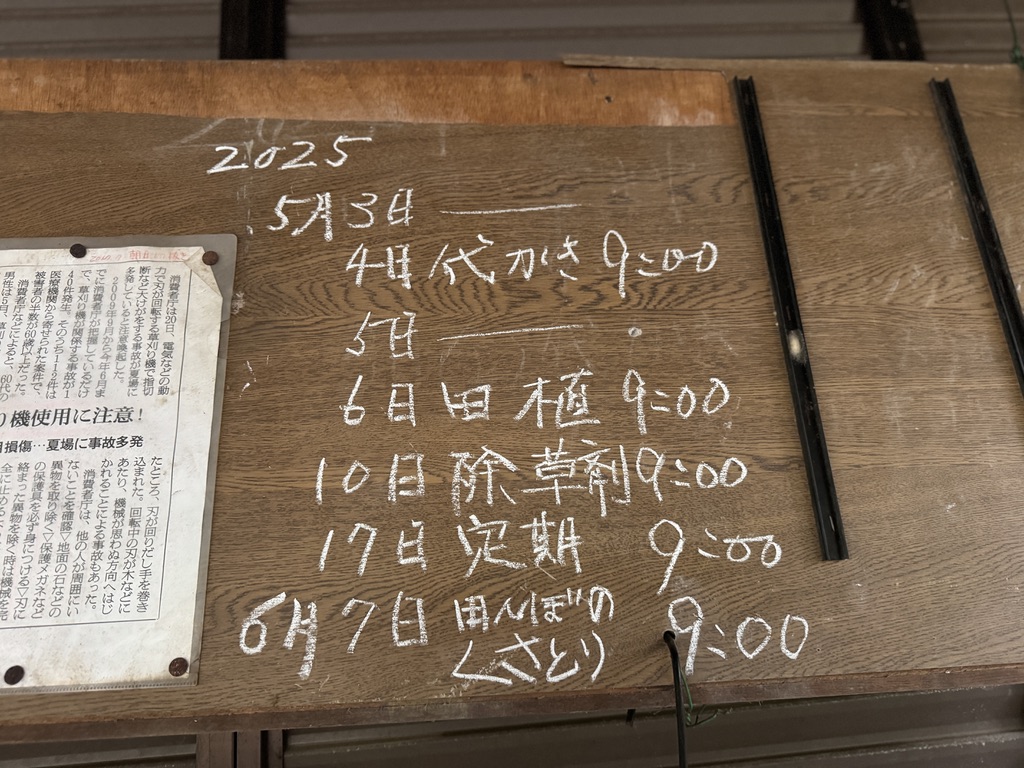 2025
5月3日 ―――
4日 代かき 9:00
5日 ―――
6日 田植 9:00
10日 除草剤 9:00
17日 定期 9:00
6月7日 田んぼの くさとり 9:00
消費者庁は20日、電気などの動
力で刃が回転する草刈り機で指切
断など大けがをする事故が夏場に
多発していると注意喚起した。
2009年9月から今年6月ま
でに消費者庁が把握しているだけ
で、草刈り機が関係する事故が1
40件発生。そのうち112件は
医療機関から寄せられた案件で、
被害者の半数が60歳以上だった。
消費者庁などによると、60代の
男性は5月、草刈り
り機使用に注意!
損傷…夏場に事故多発
たところ、刃が回りだし手を巻き
込まれた。回転中の刃が木などに
あたり、機械が思わぬ方向へはじ
かれることによる事故もあった。
消費者庁は、他の人が周囲にい
ないことを確認▽地面の石などの
異物を取り除く▽保護メガネなど
の保護具を必ず身につける▽刃に
絡まった異物を除く時は機械を完
全に止める